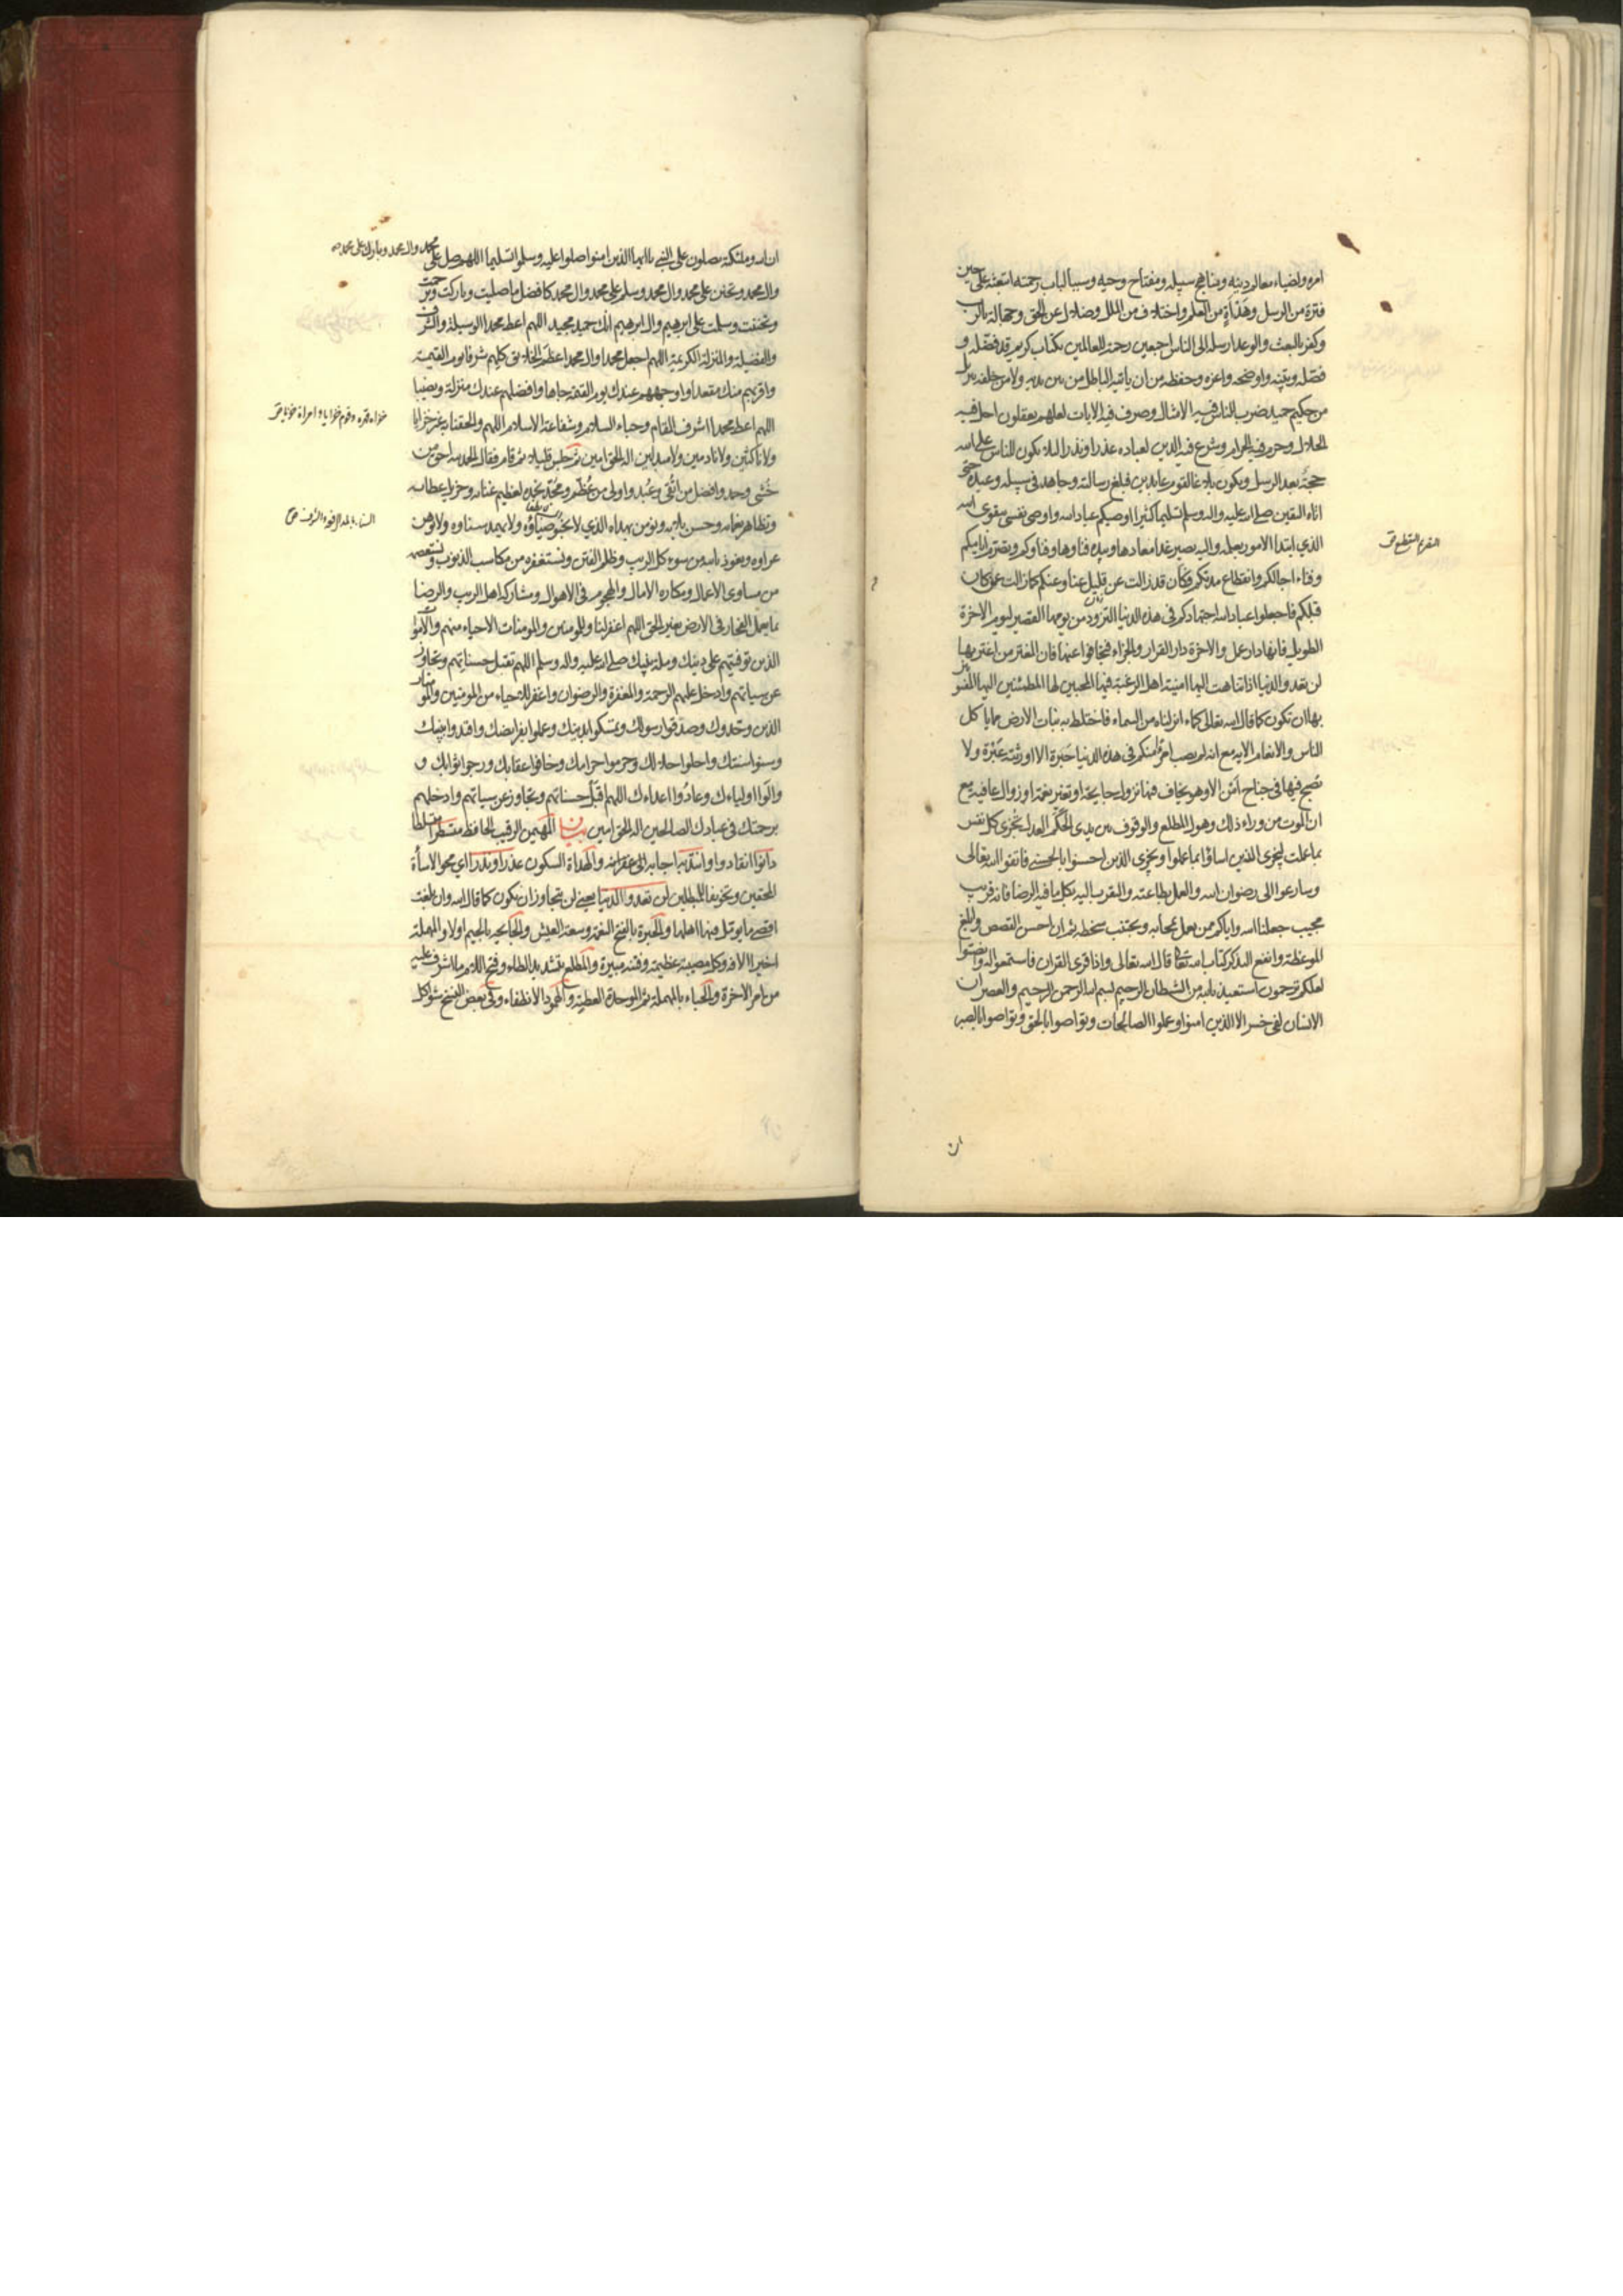 امره واضياء معالم دينه ومناهج سبيله ومفتاح وحيه وسببا لباب رحمته ابتعثه على حين
فترة من الرسل وهدأة من العلم واختلاف من الملل وضلال عن الحق وجهالة بالرب
وكفر بالبعث والوعد ارسله الى الناس اجمعين رحمة للعالمين بكتاب كريم قد فضله و
فصله وبينه واوضحه واعزه وحفظه من ان ياتيه الباطل من بين يديه ولا من خلفه تنزيل
من حكيم حميد ضرب للناس فيه الامثال وصرف فيه الايات لعلهم يعقلون احل فيه
الحلال وحرم فيه الحرام وشرع فيه الدين لعباده عذرا ونذرا لئلا يكون للناس على الله
حجة بعد الرسل ويكون بلاغا لقوم عابدين فبلغ رسالته وجاهد في سبيله وعبده حتى
اتاه اليقين صلى الله عليه واله وسلم تسليما كثيرا اوصيكم عباد الله واوصي نفسي بتقوى الله
الذي ابتدا الامور بعلمه واليه يصير غدا معادها وبيده فناوها وفناوكم وتصرم ايامكم
وفناء اجالكم وانقطاع مدتكم فكأن قد زالت عن قليل عنا وعنكم كما زالت عمن كان
قبلكم فاجعلوا عباد الله اجتهادكم في هذه الدنيا التزود من يومها القصير ليوم الاخرة
الطويل فانها دار عمل والاخرة دار القرار والجزاء فتجافوا عنها فان المغتر من اغتر بها
لن تعدو الدنيا اذا تناهت اليها امنية اهل الرغبة فيها المحبين لها المطمئنين اليها المفتونين
بها ان تكون كما قال الله تعالى كماء انزلناه من السماء فاختلط به نبات الارض مما ياكل
الناس والانعام الاية مع انه لم يصب امرؤ منكم في هذه الدنيا حبرة الا اورثته عبرة ولا
يصبح فيها في جناح امن الا وهو يخاف فيها نزول جايحة او تغير نعمة او زوال عافية مع
ان الموت من وراء ذلك وهول المطلع والوقوف بين يدي الحكم العدل تجزى كل نفس
بما عملت ليجزي الذين اساؤا بما عملوا ويجزي الذين احسنوا بالحسنى فاتقوا الله تعالى
وسارعوا الى رضوان الله والعمل بطاعته والتقرب اليه بكل ما فيه الرضا فانه قريب
مجيب جعلنا الله واياكم ممن يعمل بمحابه ويجتنب سخطه ثم ان احسن القصص وابلغ
الموعظة وانفع التذكر كتاب الله تعالى قال الله تعالى واذا قرئ القران فاستمعوا له وانصتوا
لعلكم ترحمون استعيذ بالله من الشيطان الرجيم بسم الله الرحمن الرحيم والعصر ان
الانسان لفي خسر الا الذين امنوا وعملوا الصالحات وتواصوا بالحق وتواصوا بالصبر
ان
التصرم التقطع ق
ان الله وملئكته يصلون على النبي يا ايها الذين امنوا صلوا عليه وسلموا تسليما اللهم صل على
محمد وال محمد وبارك على محمد
وال محمد وتحنن على محمد وال محمد وسلم على محمد وال محمد كافضل ما صليت وباركت وترحمت
وتحننت وسلمت على ابرهيم وال ابرهيم انك حميد مجيد اللهم اعط محمدا الوسيلة والشرف
والفضيلة والمنزلة الكريمة اللهم اجعل محمدا وال محمد اعظم الخلايق كلهم شرفا يوم القيمة
واقربهم منك مقعدا واوجههم عندك يوم القيمة جاها وافضلهم عندك منزلة ونصيبا
اللهم اعط محمدا اشرف المقام وحباء السلام وشفاعة الاسلام اللهم والحقنا به غير خزايا
ولا ناكثين ولا نادمين ولا مبدلين اله الحق امين ثم جلس قليلا ثم قام فقال الحمد لله احق من
خشي وحمد وافضل من اتقي وعبد واولى من عظم ومجد نحمده لعظيم غنائه وجزيل عطائه
وتظاهر نعمائه وحسن بلائه ونومن بهداه الذي لا يخبو ضياؤه ولا يتمهد سناوه ولا يوهن
عراوه ونعوذ بالله من سوء كل الريب وظلم الفتن ونستغفره من مكاسب الذنوب ونستعصمه
من مساوي الاعمال ومكاره الامال والهجوم في الاهوال ومشاركة اهل الريب والرضا
بما يعمل الفجار في الارض بغير الحق اللهم اغفر لنا وللمومنين والمومنات الاحياء منهم والاموات
الذين توفيتهم على دينك وملة نبيك صلى الله عليه واله وسلم اللهم تقبل حسناتهم وتجاوز
عن سيئاتهم وادخل عليهم الرحمة والمغفرة والرضوان واغفر للاحياء من المومنين والمومنات
الذين وحدوك وصدقوا رسولك وتمسكوا بدينك وعملوا بفرائضك واقتدوا بنبيك
وسنوا سنتك واحلوا حلالك وحرموا حرامك وخافوا عقابك ورجوا ثوابك و
والوا اولياءك وعادوا اعداءك اللهم اقبل حسناتهم وتجاوز عن سيئاتهم وادخلهم
برحمتك في عبادك الصالحين اله الحق امين بيان المهيمن الرقيب الحافظ
دانوا انقادوا وانتدبه اجابه الى غفرانه والهدأة السكون عذرا ونذرا اي محو الاساءة
المحقين وتخويفا للمبطلين لن تعدو الدنيا يعني لن تتجاوز ان تكون كما قال الله وان بلغت
اقصى ما يوتل فيها اهلها والحبرة بالفتح النعمة وسعة العيش والجايحة بالجيم اولا والمهملة
اخيرا الافة وكل مصيبة عظيمة وفتنة مبيرة والمطلع بتشديد الطاء وفتح اللام ما اشرف عليه
من امر الاخرة والحباء بالمهملة ثم الموحدة العطية والهمود الانطفاء وفي بعض النسخ